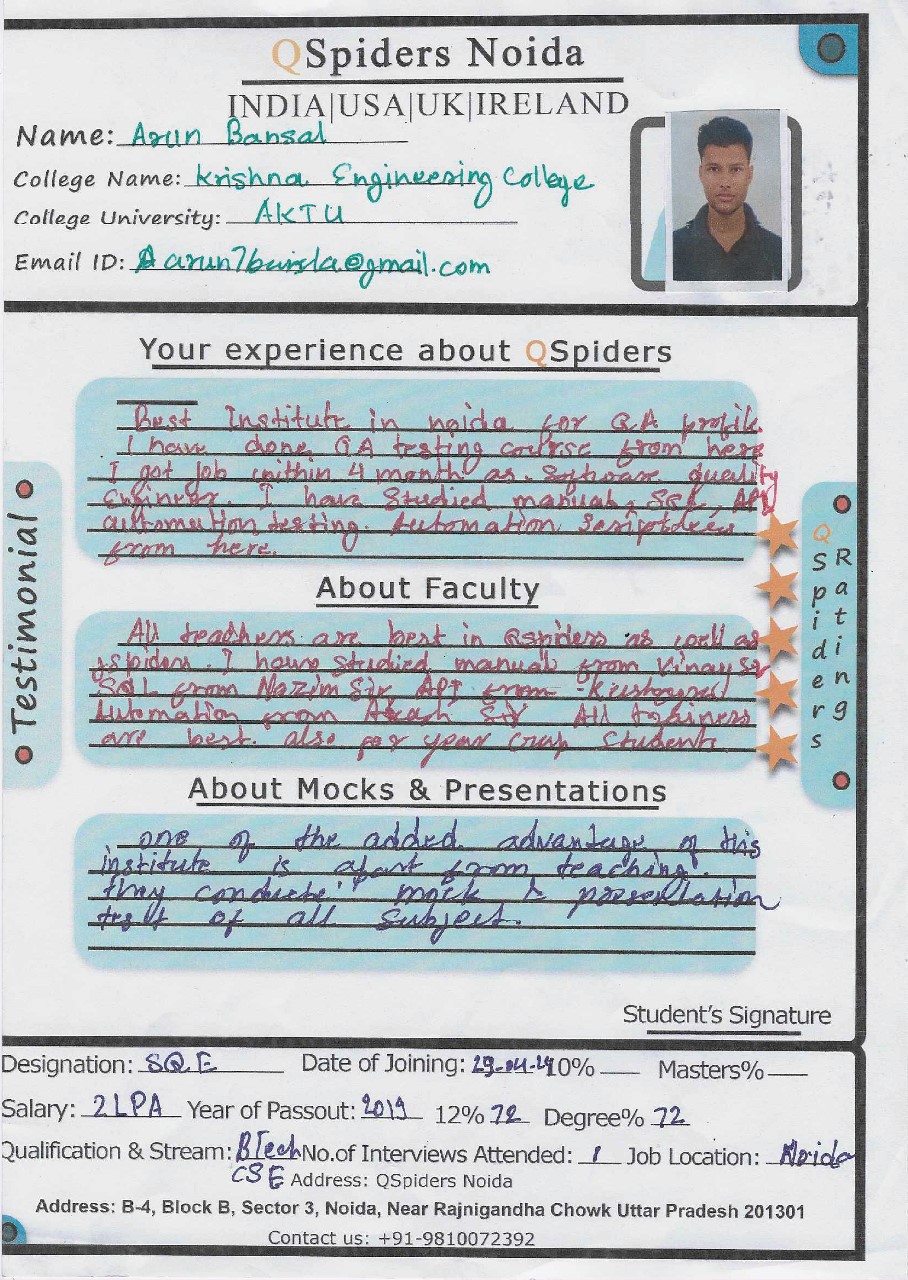 QSpiders Noida
INDIA|USA|UK|IRELAND
Name: Arun Bansal
College Name: Krishna Engineering College
College University: AKTU
Email ID: @gmail.com
Your experience about QSpiders
Best Institute in noida for QA profile.
I have done QA testing course from here
I got job within 4 month as Software quality
Engineer. I have Studied manual, SQL, API
automation testing. Automation
from here.
About Faculty
All teachers are best in Qspiders as well as
jspiders. I have studied manual from Vinay Sir
SQL from Nazim Sir, API from
Automation from Akash Sir All trainers
are best. also for year Students
About Mocks & Presentations
one of the added advantage of this
institute is apart from teaching.
they mock & presentation
test of all subject.
Testimonial
QSpiders
Ratings
Student's Signature
Designation: SQE Date of Joining: 29-04-24 10% Masters%
Salary: 2LPA Year of Passout: 2019 12% 72 Degree% 72
Qualification & Stream: BTech No.of Interviews Attended: 1 Job Location: Noida
CSE Address: QSpiders Noida
Address: B-4, Block B, Sector 3, Noida, Near Rajnigandha Chowk Uttar Pradesh 201301
Contact us: +91-9810072392